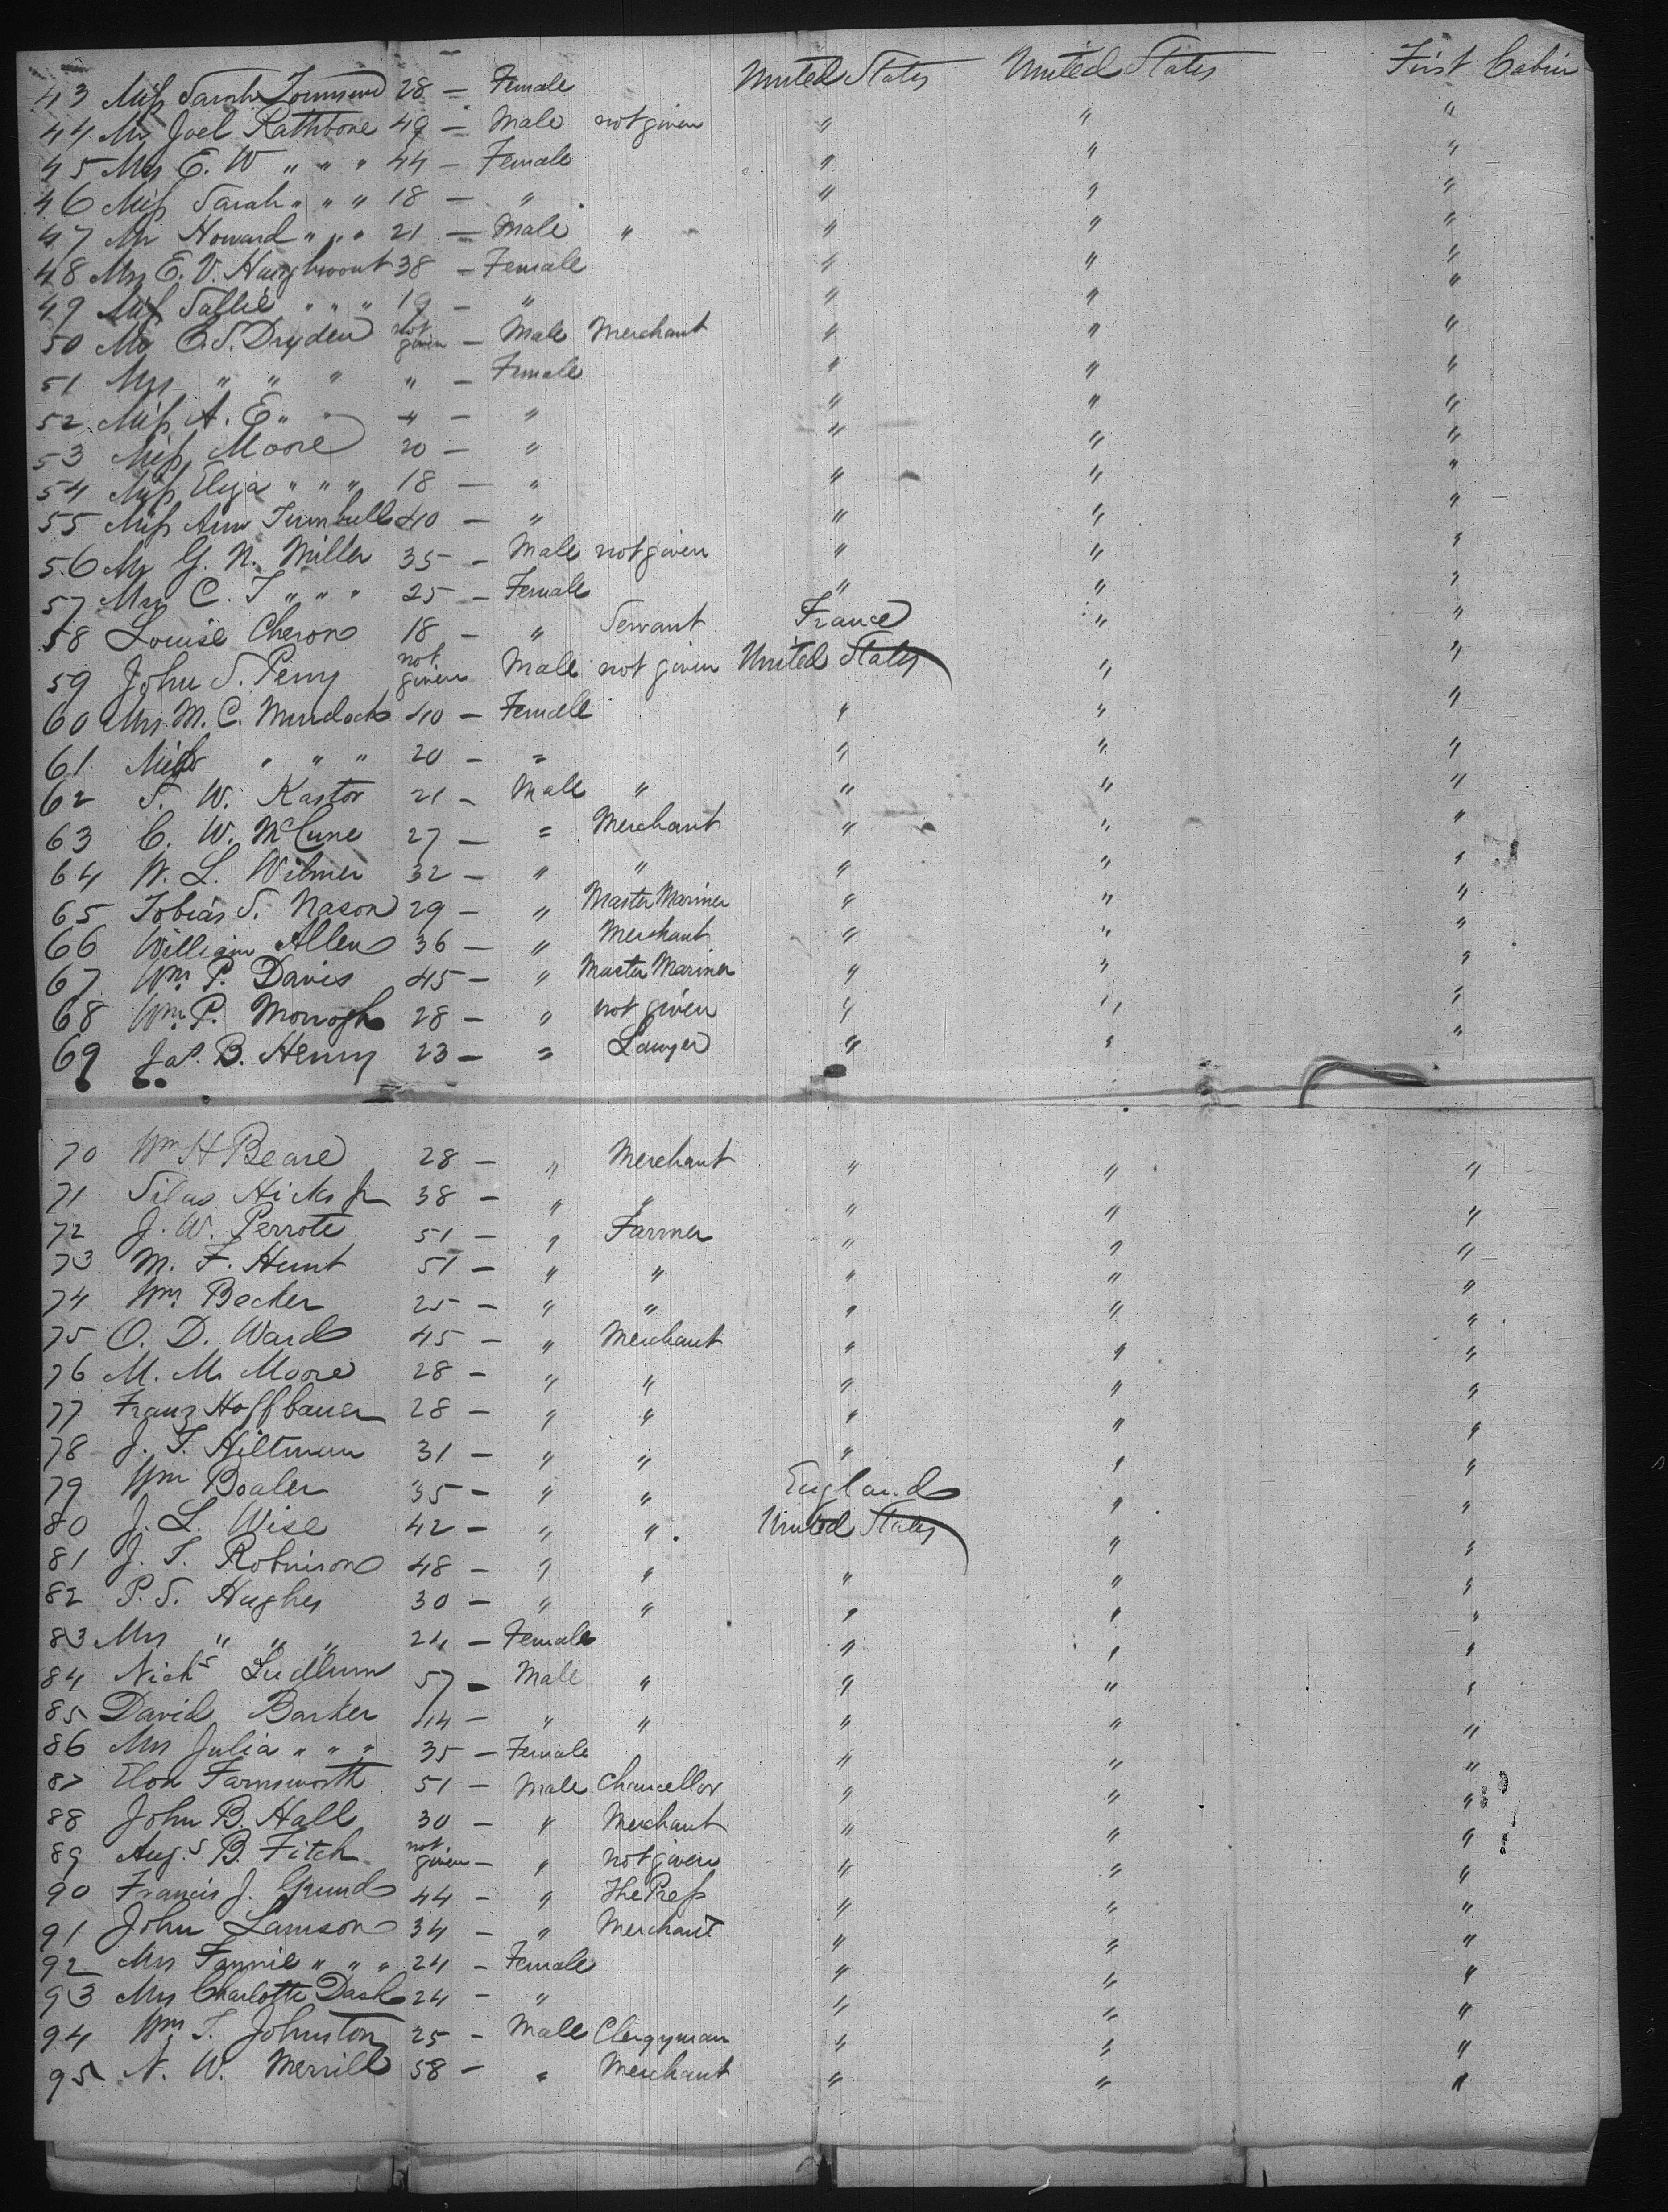 43 Miss Sarah Townsend 28 — Female United States United States First Cabin
44 Mr Joel Rathbone 49 — Male not given " " "
45 Mrs E. W " " " 44 — Female " " "
46 Miss Sarah " " " 18 — " " " "
47 Mr Howard " " " 21 — Male " " " "
48 Mrs E. V. Haughwout 38 — Female " " "
49 Miss Sallie " " " 19 — " " " "
50 Mr E. S. Dryden not given — Male Merchant " " "
51 Mrs " " " " — Female " " "
52 Miss A. E " " 4 — " " " "
53 Miss Moore 20 — " " " "
54 Miss Eliza " " " 18 — " " " "
55 Miss Ann Turnbull 40 — " " " "
56 Mr G. N. Miller 35 — Male not given " " "
57 Mrs C. T " " " 25 — Female " " "
58 Louise Cheron 18 — " Servant France " "
59 John S. Perry not given Male not given United States " "
60 Mrs M. C. Murdock 40 — Female " " "
61 Miss " " " 20 — " " " "
62 S. W. Kastor 21 — Male " " " "
63 C. W. McCune 27 — " Merchant " " "
64 W. L. Wilmer 32 — " " " " "
65 Tobias S. Nason 29 — " Master Mariner " " "
66 William Allen 36 — " Merchant " " "
67 Wm. P. Davis 45 — " Master Mariner " " "
68 Wm. P. 28 — " not given " " "
69 Jas. B. Henry 23 — " Lawyer " " "
70 Wm H Beare 28 — " Merchant " " "
71 Silas Hicks Jr 38 — " " " " "
72 J. W. Perrote 51 — " Farmer " " "
73 M. F. Hunt 51 — " " " " "
74 Wm. Becker 25 — " " " " "
75 O. D. Ward 45 — " Merchant " " "
76 M. M. Moore 28 — " " " " "
77 Franz Hoffbauer 28 — " " " " "
78 J. T. Hiltman 31 — " " " " "
79 Wm Boaler 35 — " " England " "
80 J. L. Wise 42 — " " United States " "
81 J. T. Robinson 48 — " " " " "
82 P. S. Hughes 30 — " " " " "
83 Mrs " " " 24 — Female " " "
84 Nichs Ludlum 57 — Male " " " "
85 David Barker 44 — " " " " "
86 Mrs Julia " " " 35 — Female " " "
87 Elon Farnsworth 51 — Male Chancellor " " "
88 John B. Hall 30 — " Merchant " " "
89 Augs B. Fitch not given — " not given " " "
90 Francis J. Grund 44 — " The Press " " "
91 John Lamson 34 — " Merchant " " "
92 Mrs Fannie " " " 24 — Female " " "
93 Mrs Charlotte Dash 24 — " " " "
94 Wm. T. Johnston 25 — Male Clergyman " " "
95 N. W. Merrill 58 — " Merchant " " "